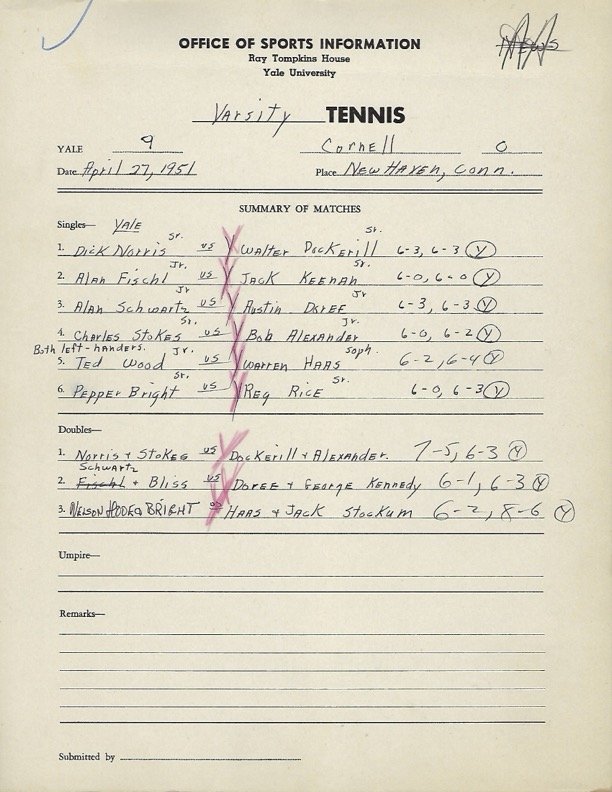 News
OFFICE OF SPORTS INFORMATION
Ray Tompkins House
Yale University
Varsity TENNIS
YALE 9 Cornell 0
Date April 27, 1951 Place New Haven, Conn.
SUMMARY OF MATCHES
Singles— YALE
1. Dick Norris Sr. vs Y Walter Dockerill Sr. 6-3, 6-3 Y
2. Alan Fischl Jr. vs Y Jack Keenan Sr. 6-0, 6-0 Y
3. Alan Schwartz Jr vs Y Austin Doree Jr 6-3, 6-3 Y
4. Charles Stokes Sr. vs Y Bob Alexander Jr. 6-0, 6-2 Y
Both left-handers.
5. Ted Wood Jr. vs Y Warren Haas Soph. 6-2, 6-4 Y
6. Pepper Bright Sr. vs Y Reg Rice Sr. 6-0, 6-3 Y
Doubles—
1. Norris + Stokes vs Dockerill + Alexander. 7-5, 6-3 Y
Schwartz
2. Fischl + Bliss vs Doree + George Kennedy 6-1, 6-3 Y
3. Nelson & Bright vs Haas + Jack Stockum 6-2, 8-6 Y
Umpire—
Remarks—
Submitted by